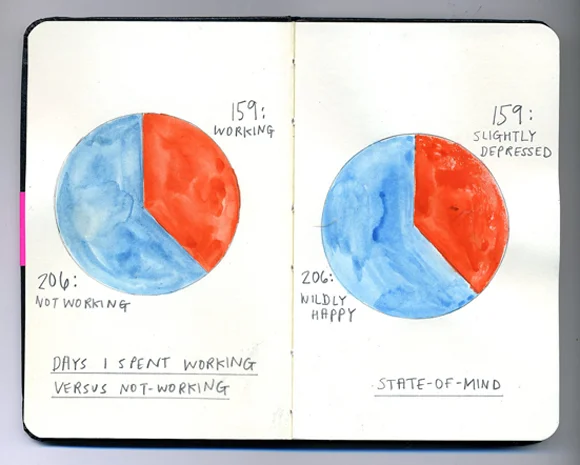 159:
WORKING
206:
NOT WORKING
DAYS I SPENT WORKING
VERSUS NOT-WORKING
159:
SLIGHTLY
DEPRESSED
206:
WILDLY
HAPPY
STATE-OF-MIND